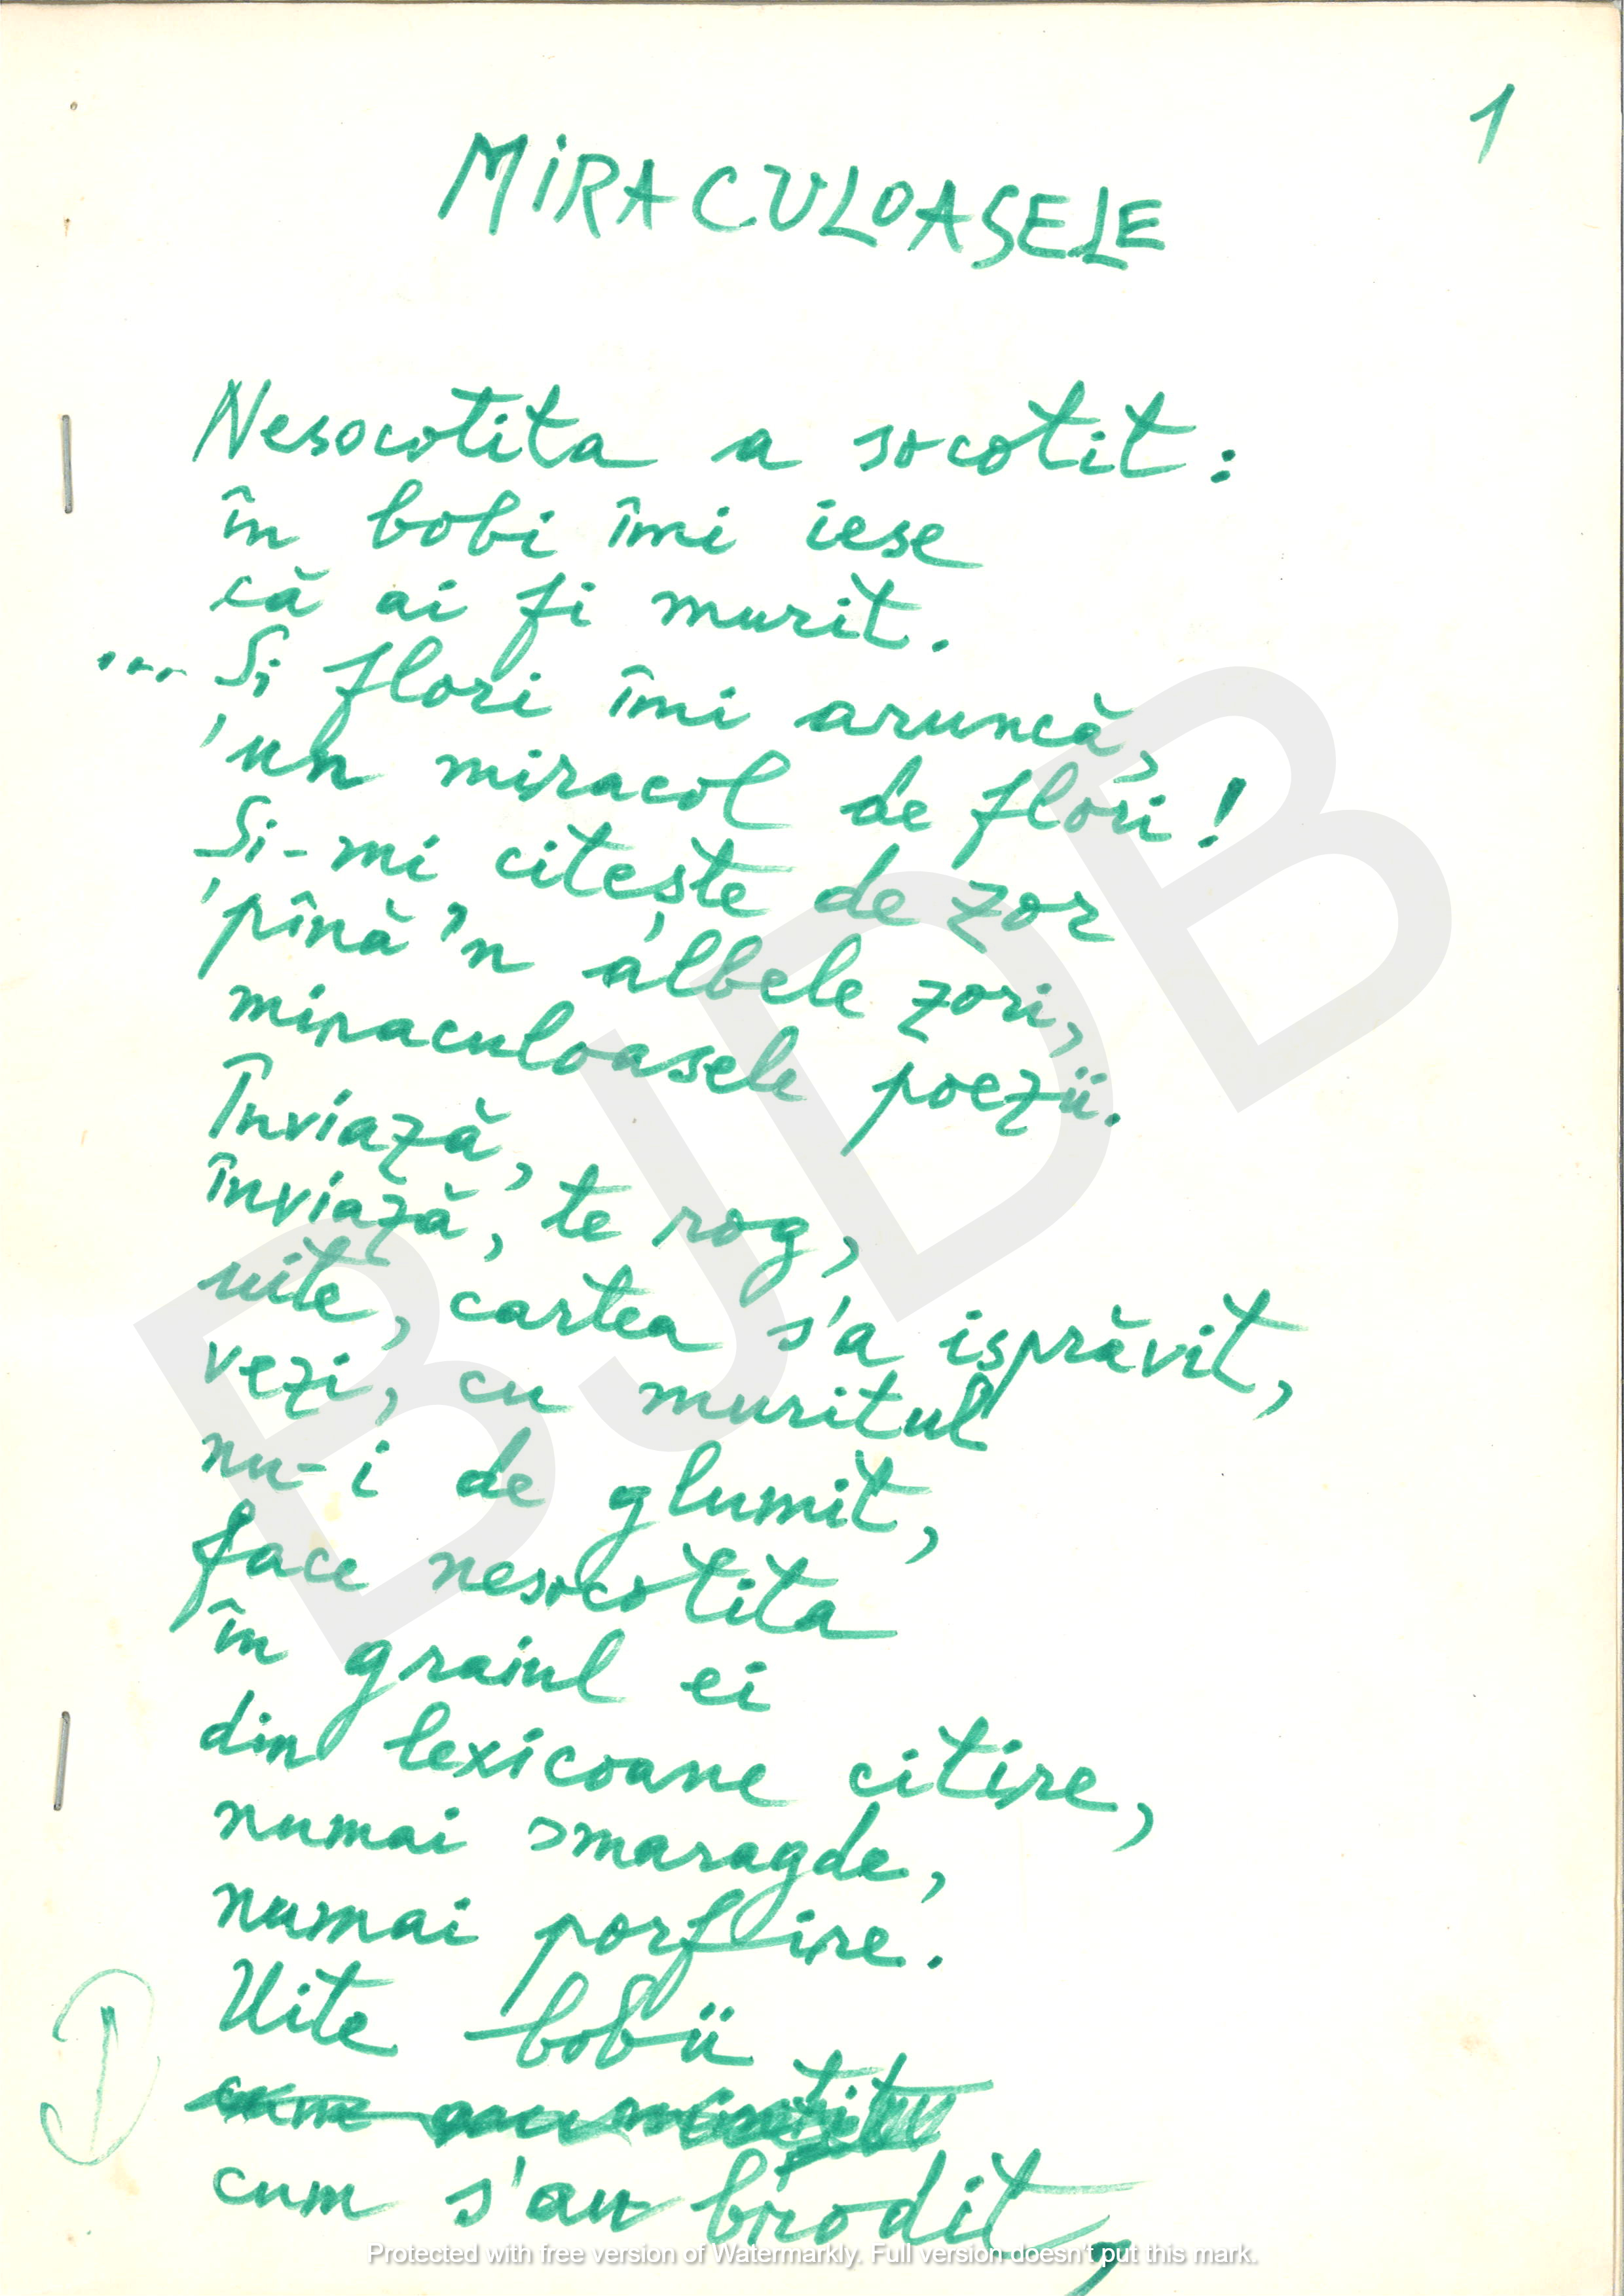 1
MIRACULOASELE
Nesocotita a socotit:
în bobi îmi iese
că ai fi murit.
... Și flori îmi aruncă,
un miracol de flori!
Și-mi citește de zor
pînă 'n albele zori,
miraculoasele poezii.
Înviază,
înviază, te rog,
uite, cartea s'a isprăvit,
vezi, cu muritul
nu-i de glumit,
face nesocotita
în graiul ei
din lexicoane citire,
numai smaragde,
numai porfire.
Uite bobii
cum s'au brodit,
BJDB
Protected with free version of Watermarkly. Full version doesn't put this mark.